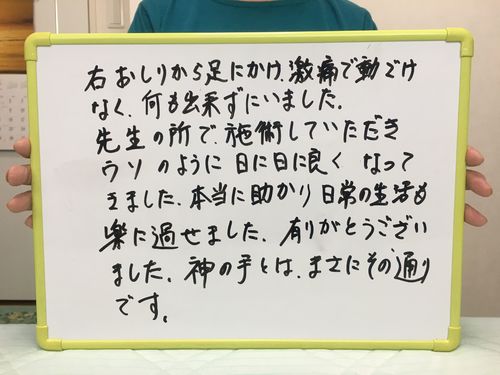 右おしりから足にかけ、激痛で動けけ
なく、何も出来ずにいました。
先生の所で、施術していただき
ウソのように日に日に良くなって
きました。本当に助かり日常の生活も
楽に過せました。有りがとうござい
ました。神の手とは、まさにその通り
です。